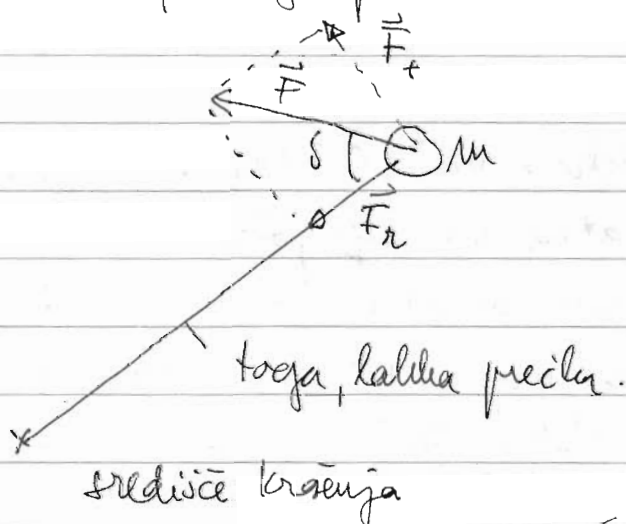 F⃗ₜ
F⃗
δ
m
F⃗ᵣ
toga, lahka prečka.
središče kroženja